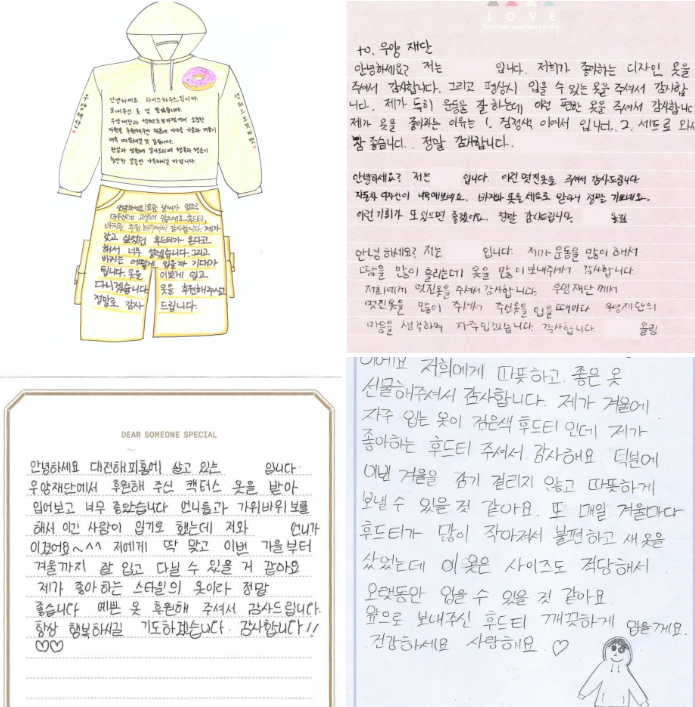 안녕하세요
보내주신 옷 잘 받았습니다.
안녕하세요! 요즘 날씨가 덥죠?
갖고 싶었던 후드티가 온다고
해서 너무 설렜습니다. 그리고
바지는 어떻게 입을까 기대가
됩니다. 옷을 이쁘게 입고
다니겠습니다. 옷을 후원해주셔서
정말로 감사 드립니다.
LOVE
to. 우양 재단
안녕하세요? 저는 입니다. 저희가 좋아하는 디자인 옷을
주셔서 감사합니다. 그리고 평상시 입을 수 있는 옷을 주셔서 감사합
니다. 제가 특히 운동을 잘 하는데 이런 편한 옷을 주셔서 감사합니다
제가 옷을 좋아하는 이유는 1. 검정색 이여서 입니다. 2. 세트로 와서
참 좋습니다. 정말 감사합니다.
안녕하세요? 저는 입니다. 이런 멋진옷을 주셔서 감사드립니다
바지와 옷을 세트로 받아서 정말 기쁘네요.
이런 기회가 또 있으면 좋겠어요. 정말 감사드립니다. 올림
안녕 하세요? 저는 입니다. 제가 운동을 많이 해서
땀을 많이 흘리는데 옷을 많이 보내주셔서 감사합니다.
저희에게 멋진옷을 주셔서 감사합니다. 우양 재단 께서
멋진옷을 많이 주셔서 주신옷을 입을 때마다 우양재단의
마음을 생각하며 자주입겠습니다. 감사합니다 올림
DEAR SOMEONE SPECIAL
안녕하세요 대전해피홈에 살고 있는 입니다
우양재단에서 후원해 주신 캑터스 옷을 받아
입어보고 너무 좋았습니다 언니들과 가위바위 보를
해서 이긴 사람이 입기로 했는데 저와 언니가
이겼어요~^^ 저에게 딱 맞고 이번 가을부터
겨울까지 잘 입고 다닐 수 있을 거 같아요
제가 좋아하는 스타일의 옷이라 정말
좋습니다 예쁜 옷 후원해 주셔서 감사드립니다.
항상 행복하시길 기도하겠습니다. 감사합니다!!
♡♡
이에요 저희에게 따뜻하고 좋은 옷
선물해주셔서 감사합니다. 제가 겨울에
자주 입는 옷이 검은색 후드티 인데 제가
좋아하는 후드티 주셔서 감사해요 덕분에
이번 겨울을 감기 걸리지 않고 따뜻하게
보낼 수 있을 것 같아요. 또 매일 겨울마다
후드티가 많이 작아져서 불편하고 새 옷을
샀었는데 이 옷은 사이즈도 적당해서
오랫동안 입을 수 있을 것 같아요.
앞으로 보내주신 후드티 깨끗하게 입을게요.
건강하세요 사랑해요 ♡